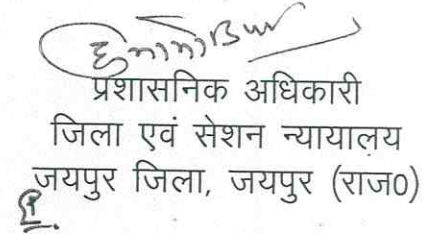 प्रशासनिक अधिकारी
जिला एवं सेशन न्यायालय
जयपुर जिला, जयपुर (राज0)